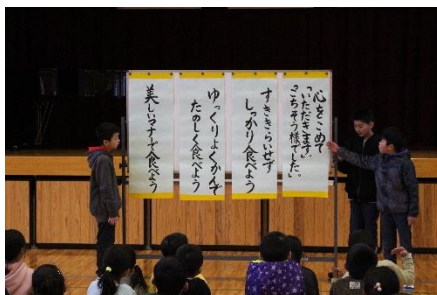 心をこめて
「いただきます」
ごちそう様でした。
すききらいせず
しっかり食べよう
ゆっくりよくかんで
たのしく食べよう
美しいマナーで食べよう